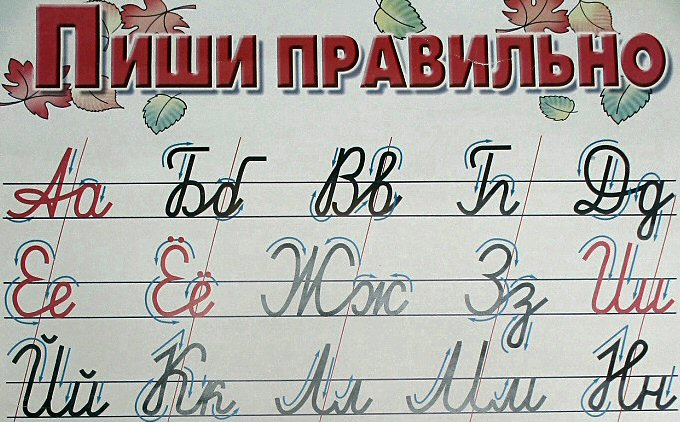 Пиши правильно
Аа Бб Вв Гг Дд
Ее Ёё Жж Зз Ии
Йй Кк Лл Мм Нн